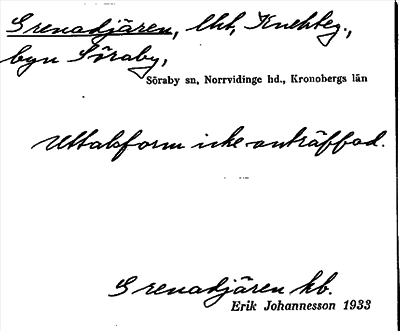 Grenadjären, lht, Knektbg.,
byn Söraby,
Söraby sn, Norrvidinge hd., Kronobergs län
Uttalsform icke anträffad.
Grenadjären kb.
Erik Johannesson 1933